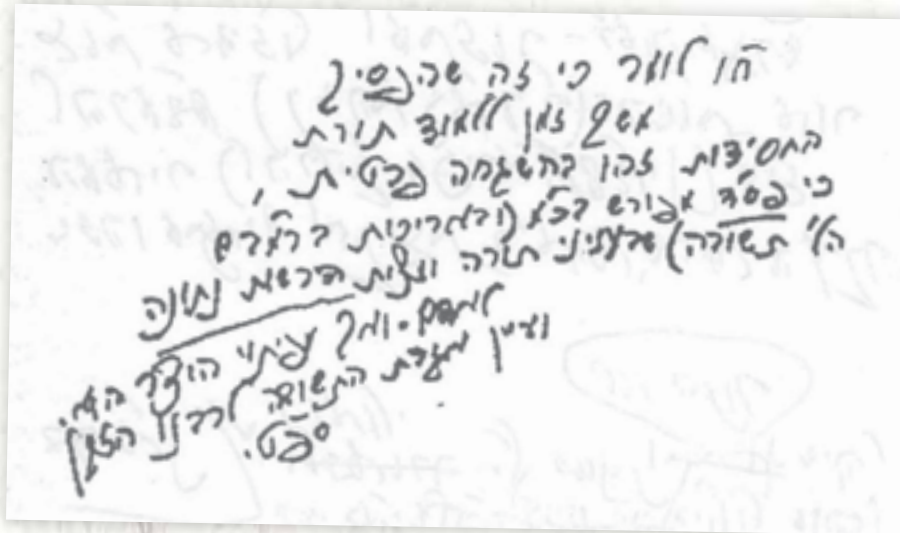 ח"ו לומר כי זה שהפסיק
משך זמן ללמוד תורת
החסידות זהו בהשגחה פרטית,
כי פס"ד מפורש בכ"מ (ובאריכות ברמב"ם
הל' תשובה) שבעניני תורה ומצות הרשות נתונה
לאדם. ורק פיתוי היצה"ר הוא.
ועיין אגרת התשובה לרבנו הזקן
ספ"ט.